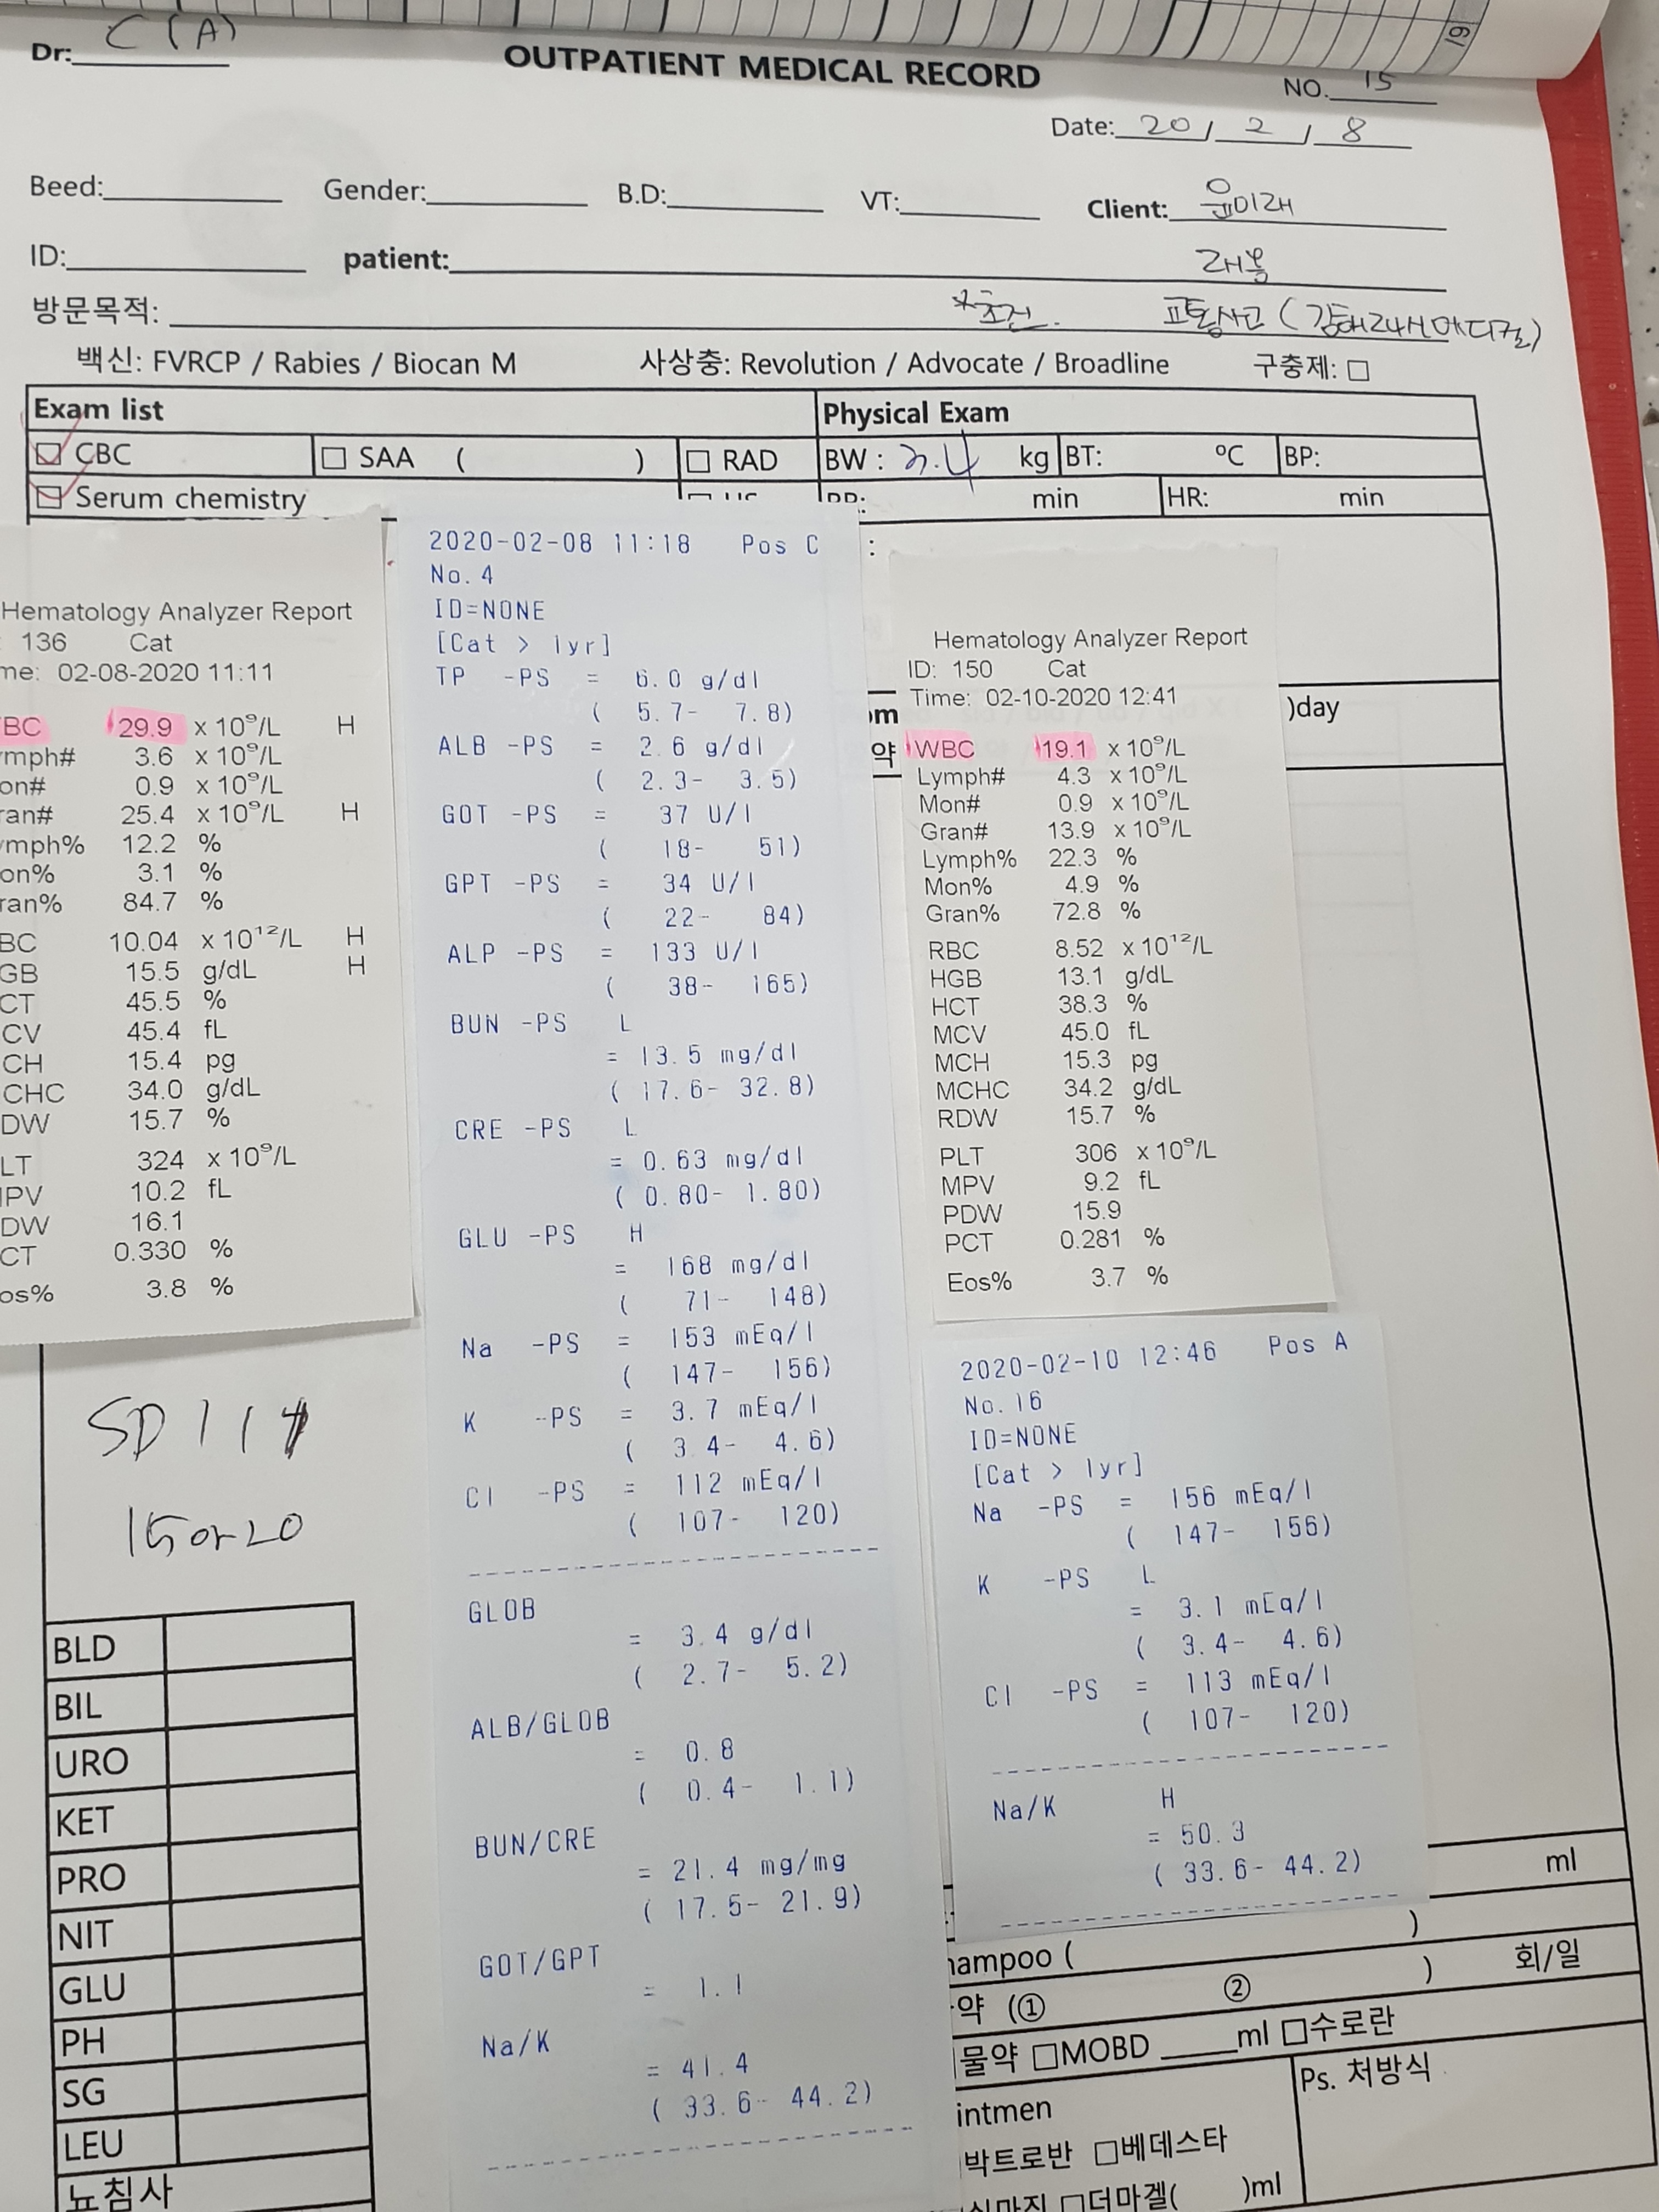 Dr: C (A)
OUTPATIENT MEDICAL RECORD
NO. 15
Date: 20 / 2 / 8
Beed: Gender: B.D: VT: Client: 윤미래
ID: patient: 래옹
방문목적: *초진. 교통사고 (김해24시메디컬)
백신: FVRCP / Rabies / Biocan M 사상충: Revolution / Advocate / Broadline 구충제: □
Exam list Physical Exam
CBC □ SAA ( ) □ RAD BW : 3.4 kg BT: ºC BP:
Serum chemistry min HR: min
Hematology Analyzer Report
: 136 Cat
me: 02-08-2020 11:11
BC 29.9 x 10⁹/L H
mph# 3.6 x 10⁹/L
on# 0.9 x 10⁹/L
ran# 25.4 x 10⁹/L H
mph% 12.2 %
on% 3.1 %
ran% 84.7 %
BC 10.04 x 10¹²/L H
GB 15.5 g/dL H
CT 45.5 %
CV 45.4 fL
CH 15.4 pg
CHC 34.0 g/dL
DW 15.7 %
LT 324 x 10⁹/L
PV 10.2 fL
DW 16.1
CT 0.330 %
os% 3.8 %
SD 114
15 or 20
BLD
BIL
URO
KET
PRO
NIT
GLU
PH
SG
LEU
뇨침사
2020-02-08 11:18 Pos C
No. 4
ID=NONE
[Cat > 1yr]
TP -PS = 6.0 g/dl
( 5.7- 7.8)
ALB -PS = 2.6 g/dl
( 2.3- 3.5)
GOT -PS = 37 U/l
( 18- 51)
GPT -PS = 34 U/l
( 22- 84)
ALP -PS = 133 U/l
( 38- 165)
BUN -PS L
= 13.5 mg/dl
( 17.6- 32.8)
CRE -PS L
= 0.63 mg/dl
( 0.80- 1.80)
GLU -PS H
= 168 mg/dl
( 71- 148)
Na -PS = 153 mEq/l
( 147- 156)
K -PS = 3.7 mEq/l
( 3.4- 4.6)
Cl -PS = 112 mEq/l
( 107- 120)
GLOB
= 3.4 g/dl
( 2.7- 5.2)
ALB/GLOB
= 0.8
( 0.4- 1.1)
BUN/CRE
= 21.4 mg/mg
( 17.5- 21.9)
GOT/GPT
= 1.1
Na/K
= 41.4
( 33.6- 44.2)
:
om
약
)day
Hematology Analyzer Report
ID: 150 Cat
Time: 02-10-2020 12:41
WBC 19.1 x 10⁹/L
Lymph# 4.3 x 10⁹/L
Mon# 0.9 x 10⁹/L
Gran# 13.9 x 10⁹/L
Lymph% 22.3 %
Mon% 4.9 %
Gran% 72.8 %
RBC 8.52 x 10¹²/L
HGB 13.1 g/dL
HCT 38.3 %
MCV 45.0 fL
MCH 15.3 pg
MCHC 34.2 g/dL
RDW 15.7 %
PLT 306 x 10⁹/L
MPV 9.2 fL
PDW 15.9
PCT 0.281 %
Eos% 3.7 %
2020-02-10 12:46 Pos A
No. 16
ID=NONE
[Cat > 1yr]
Na -PS = 156 mEq/l
( 147- 156)
K -PS L
= 3.1 mEq/l
( 3.4- 4.6)
Cl -PS = 113 mEq/l
( 107- 120)
Na/K H
= 50.3
( 33.6- 44.2)
ml
hampoo ( )
약 (① ② ) 회/일
물약 □MOBD ml □수로란
intmen Ps. 처방식
박트로반 □베데스타
□더마겔( )ml